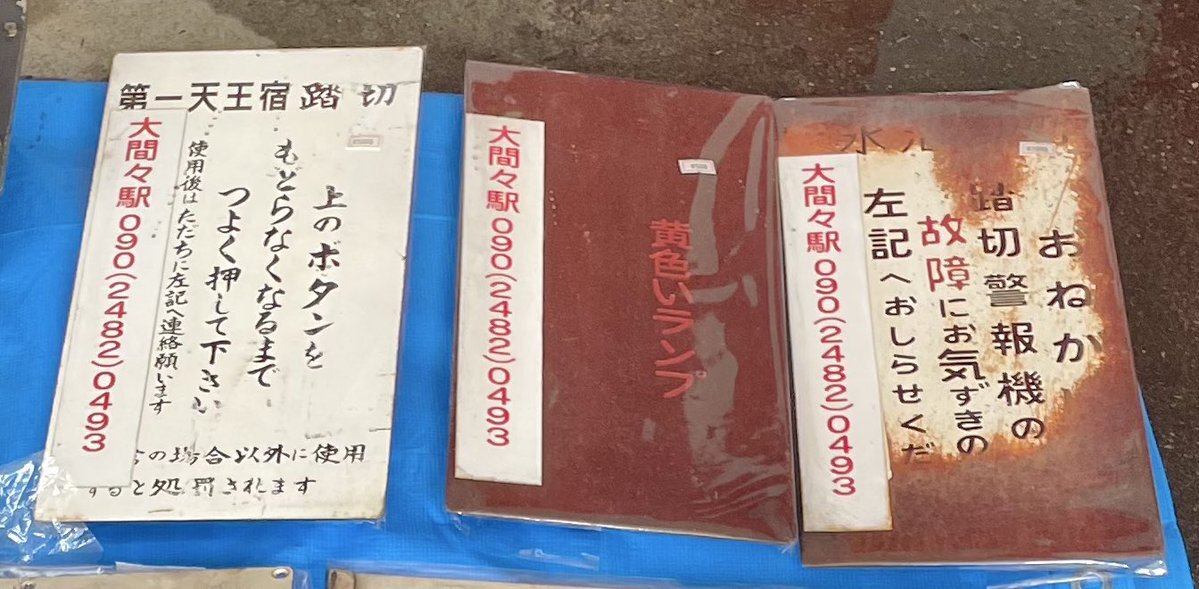 第一天王宿踏切
上のボタンを
もとらなくなるまで
つよく押して下さい
使用後はただちに左記へ連絡願います
大間々駅 090(2482)0493
の場合以外に使用
すると処罰されます
黄色いランプ
大間々駅 090(2482)0493
おねが
踏切警報機の
故障にお気ずきの
左記へおしらせくだ
大間々駅 090(2482)0493